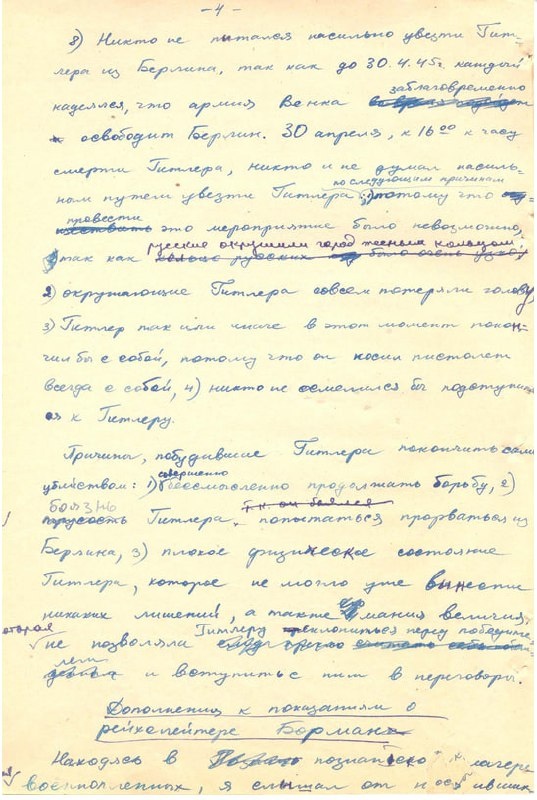 -4-
8) Никто не пытался насильно увезти Гит-
лера из Берлина, так как до 30.4.45г каждый
заблаговременно
надеялся, что армия Венка
освободит Берлин. 30 апреля, к 16⁰⁰ к часу
смерти Гитлера, никто и не думал насиль-
по следующим причинам
ным путем увезти Гитлера потому что
провести
это мероприятие было невозможно,
русские окружили город тесным кольцом
так как кольцо русских было очень узкой
2) окружающие Гитлера совсем потеряли голову,
3) Гитлер так или иначе в этот момент покон-
чил бы с собой, потому что он носил пистолет
всегда с собой, 4) никто не осмелился бы подступить-
ся к Гитлеру.
Причины, побудившие Гитлера покончить само
совершенно
убийством: 1) бессмысленно продолжать борьбу, 2)
боязнь т.к. он боялся
трусость Гитлера попытаться прорваться из
Берлина, 3) плохое физическое состояние
Гитлера, которое не могло уже вынести
никаких лишений, а также мания величия,
которая Гитлеру преклониться перед победите-
не позволяла
лем и вступить с ним в переговоры.
Дополнения к показаниям о
рейхслейтере Бормане
Находясь в познанском лагере
военнопленных, я слышал от носивших